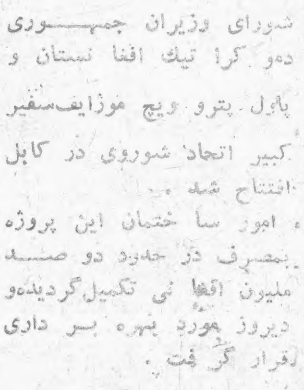 شورای وزیران جمهـــوری
دمو کرا تیك افغا نستان و
پاول پترو ویچ موزایف‌سفیر
کبیر اتحاد شوروی در کابل
افتتاح شد ۰
۰ امور سا ختمان این پروژه
بمصرف در حدود دو صـــد
ملیون افغا نی تکمیل‌گردیده‌و
دیروز مورد بهره بـر داری
قرار گر فت ۰